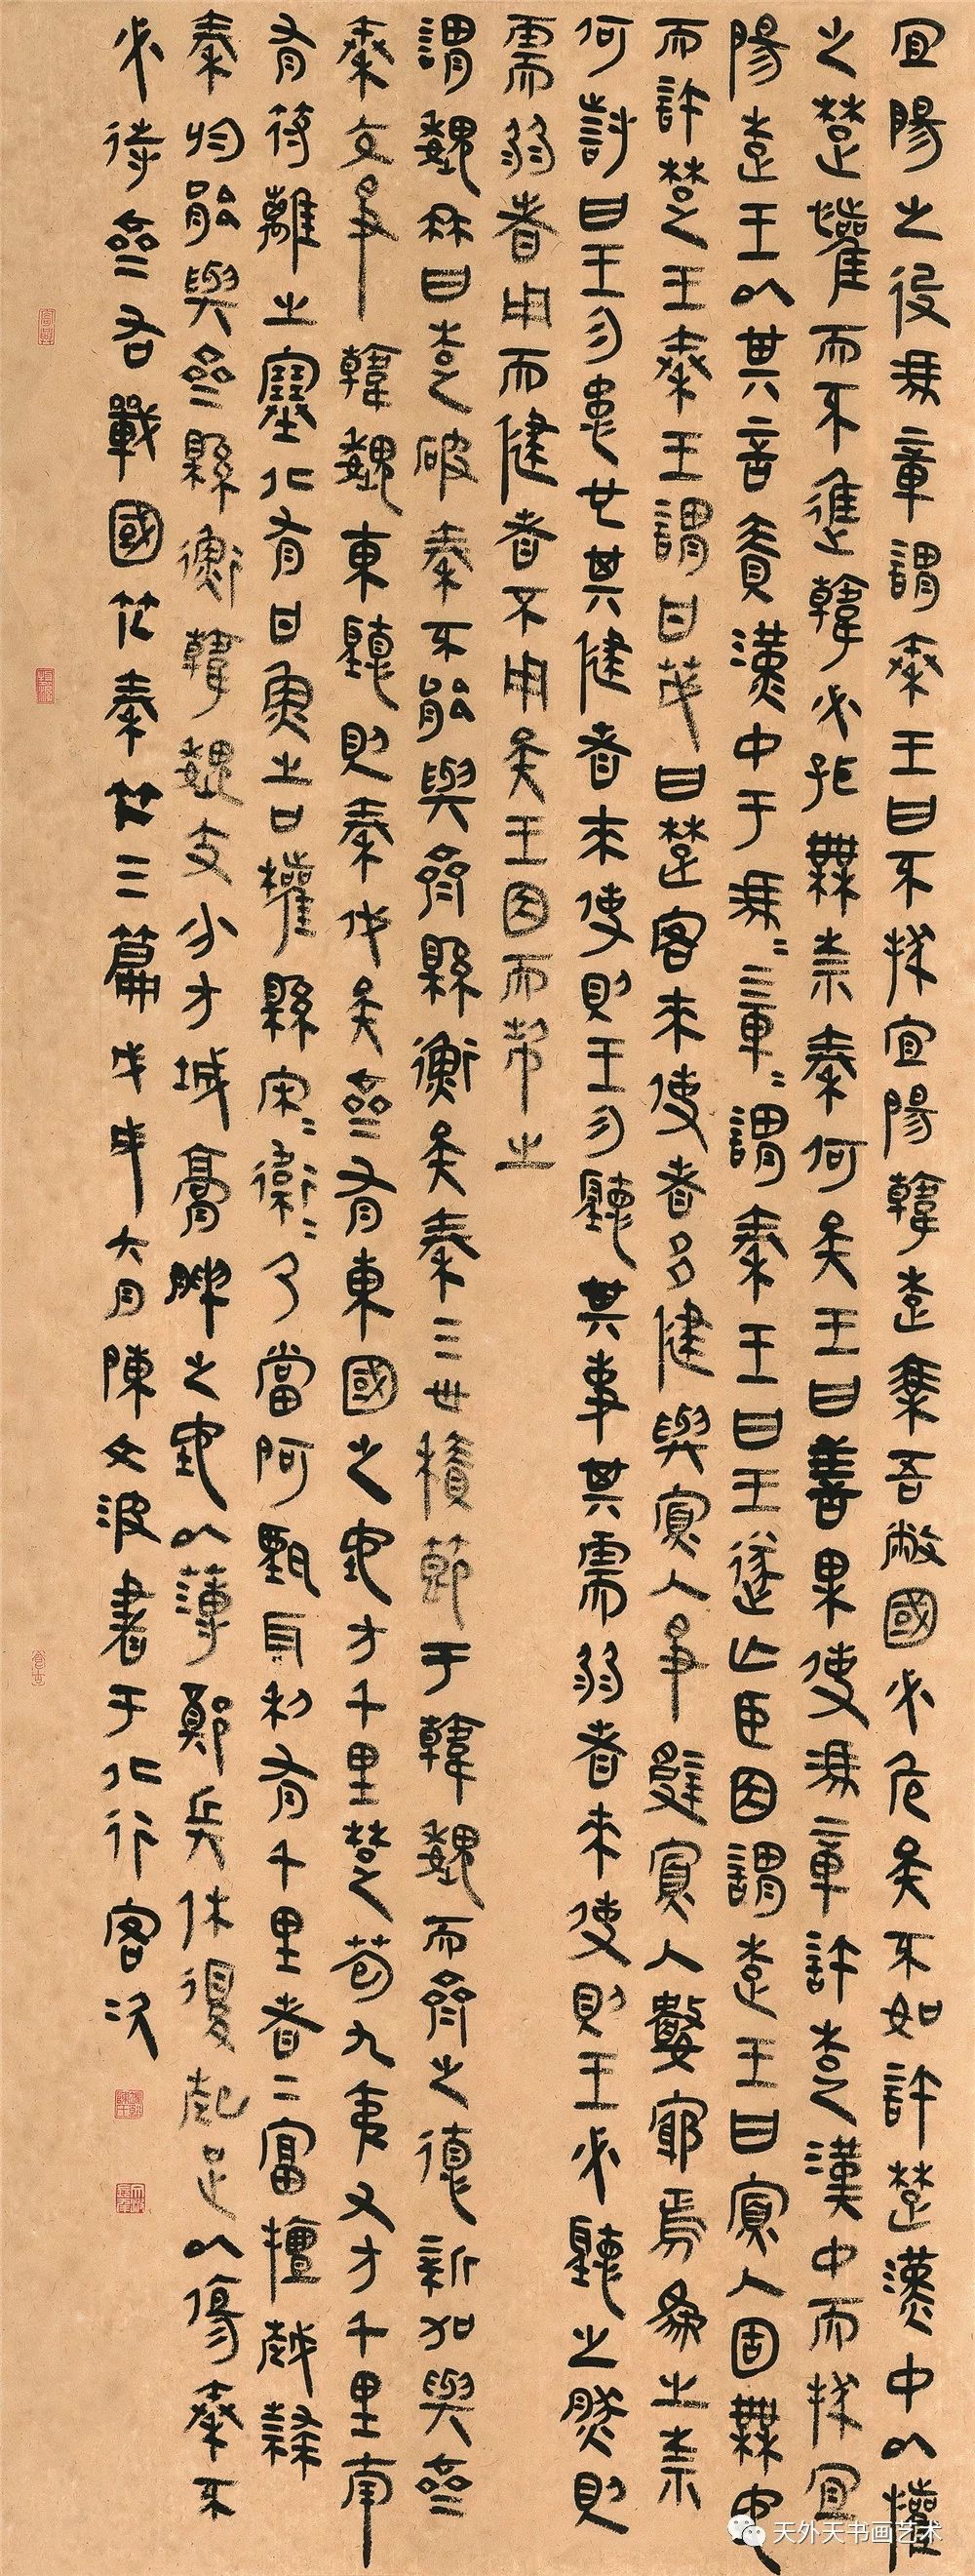 宜陽之役馮章謂秦王曰不拔宜陽韓楚乘吾敝國必危矣不如許楚漢中以懽
之楚懽而不進韓必孤無柰秦何矣王曰善果使馮章許楚漢中而拔宜
陽楚王以其言責漢中于馮=章=謂秦王曰王遂亡臣因謂楚王曰寡人固無地
而許楚王秦王謂甘茂曰楚客來使者多健與寡人爭辭寡人數窮焉為之柰
何對曰王勿患也其健者來使則王勿聽其事其需弱者來使則王必聽之然則
需弱者用而健者不用矣王因而制之
謂魏冉曰楚破秦不能與齊縣衡矣秦三世積節于韓魏而齊之德新加與齊
秦交爭韓魏東聽則秦伐矣齊有東國之地方千里楚苞九夷又方千里南
有符離之塞北有甘魚之口權縣宋=衛=乃當阿甄耳利有千里者二富擅越隸
秦烏能與齊縣衡韓魏支分方城膏腴之地以薄鄭兵休復起足以傷秦不
必待齊 戰國策秦策三篇戊戌六月陳文波書于北京客次
天外天书画艺术